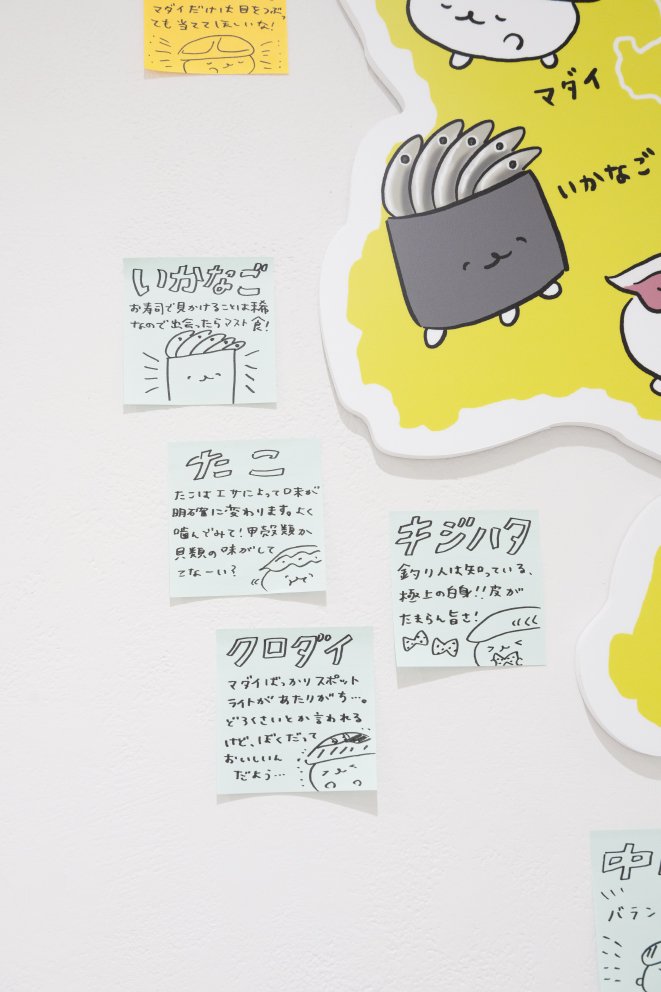 マダイだけは目をつぶっ
ても当ててほしいな!
マダイ
いかなご
いかなご
お寿司で見かけることは稀
なので出会ったらマスト食!
たこ
たこはエサによって口味が
明確に変わります。よく
噛んでみて!甲殻類か
貝類の味がして
てなーい?
キジハタ
釣り人は知っている、
極上の白身!!皮が
たまらん旨さ!
クロダイ
マダイばっかりスポット
ライトがあたりがち…。
どろくさいとか言われる
けど、ぼくだって
おいしいん
だよう…
中
バラン